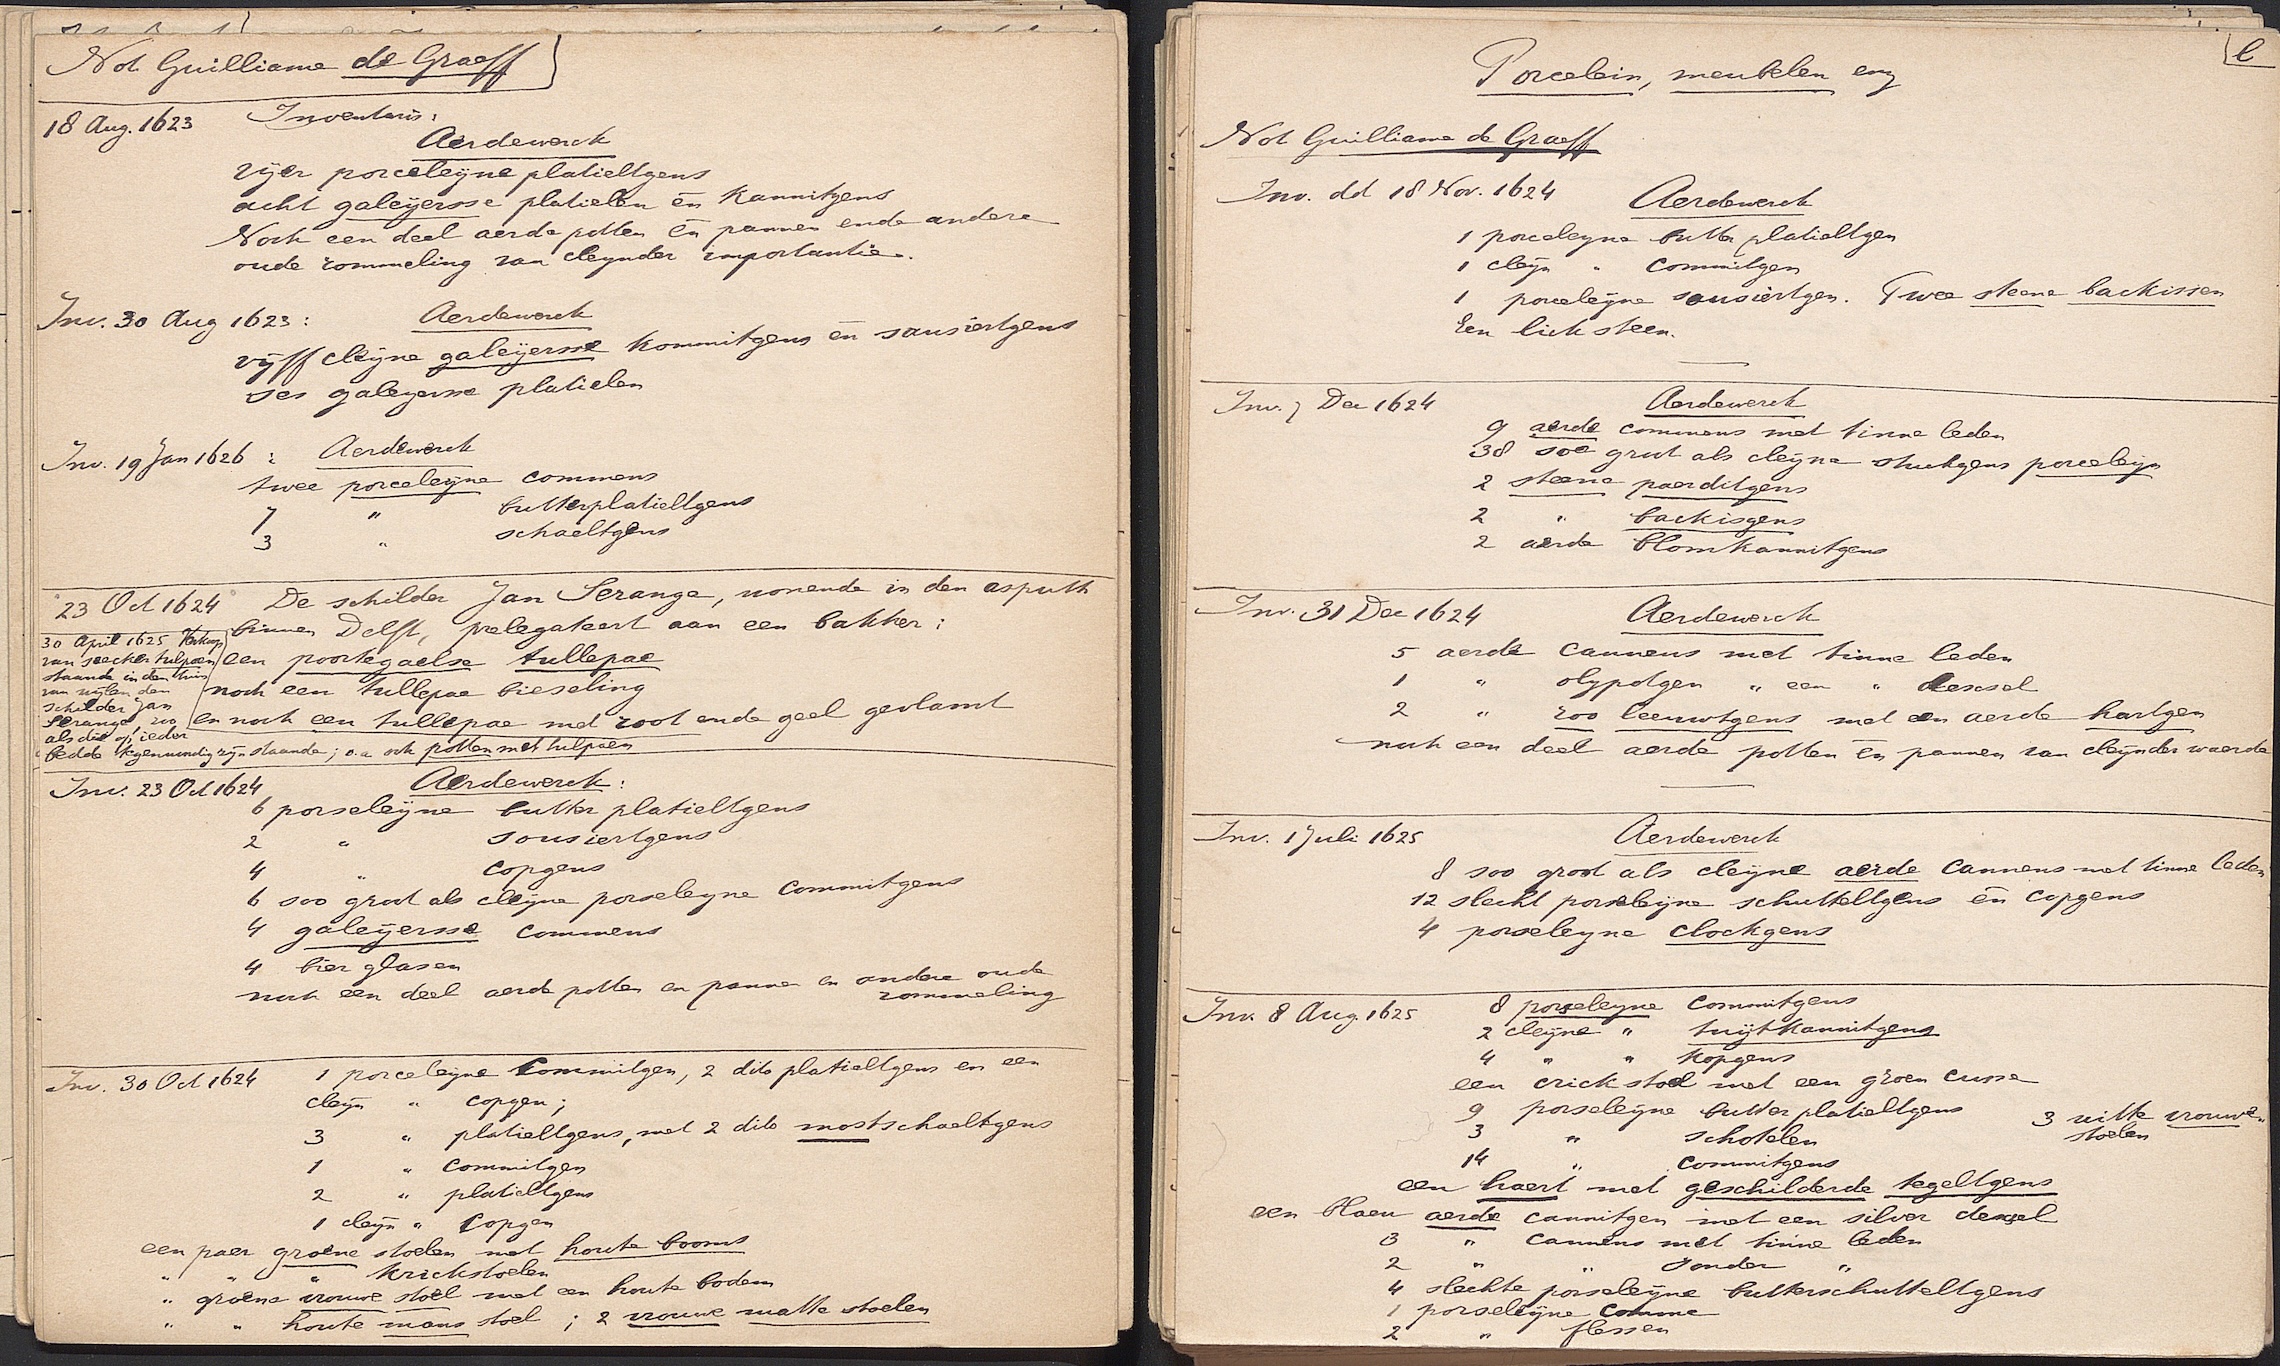 Not Guilliame de Graeff
18 Aug. 1623 Inventaris:
Aerdewerck
vijer porceleijne platieltgens
acht galeijersse platielen en kannitgens
Noch een deel aerde potten en pannen ende andere
oude rommeling van cleijnder importantie.
Inv. 30 Aug 1623: Aerdewerck
vijff cleijne galeijersse kommitgens en sausiertgens
ses galeyersse platielen
Inv. 19 Jan 1626: Aerdewerck
twee porceleijne commens
7 " butterplatieltgens
3 " schaeltgens
23 Oct 1624 De schilder Jan Serange, wonende in den asputh
binnen Delft, prelegateert aan een bakker:
een poortegaelse tullepae
noch een tullepae bieseling
en noch een tullepae met root ende geel gevlamt
30 April 1625 Verkoop
van seecker tulpaen
staande in den tuin
van wijlen den
schilder Jan
Serange, zoo
als die op ieder
bedde tegenwoordig zijn staande; o.a. ook potten met tulpaen
Inv. 23 Oct 1624 Aerdewerck:
6 porseleijne butter platieltgens
2 " sousiertgens
4 " copgens
6 soo groot als cleijne porseleyne commitgens
4 galeijersse commens
4 bier glasen
noch een deel aerde potten en pannen en andere oude
rommeling
Inv. 30 Oct 1624 1 porceleijne commitgen, 2 dito platieltgens en een
cleijn " copgen;
3 " platieltgens, met 2 dito mostschaeltgens
1 " commitgen
2 " platieltgens
1 cleijn " copgen
een paer groene stoelen met houte booms
" " " krickstoelen
" groene vrouwe stoel met een houte bodem
" " houte mans stoel; 2 vrouwe matte stoelen
l
Porcelein, meubelen enz
Not Guilliame de Graeff
Inv. dd 18 Nov. 1624 Aerdewerck
1 porceleyne butter platieltgen
1 cleijn " commitgen
1 porceleijne sousiertgen. Twee steene backissen
Een lick steen.
Inv. 7 Dec 1624 Aerdewerck
9 aerde commens met tinne leden
38 soo groot als cleijne stuckgens porceleijn
2 steene paerditgens
2 " backisgens
2 aerde blomkannitgens
Inv. 31 Dec 1624 Aerdewerck
5 aerde cannens met tinne leden
1 " olypotgen " een " dexsel
2 " roo leeuwtgens met een aerde hartgen
noch een deel aerde potten en pannen van cleijnder waerde
Inv. 1 Juli 1625 Aerdewerck
8 soo groot als cleijne aerde cannens met tinne leden
12 slecht porseleijne schutteltgens en copgens
4 porseleyne clockgens
Inv. 8 Aug. 1625 8 porseleyne commitgens
2 cleijne " tuijtkannitgens
4 " " kopgens
een crickstoel met een groen cusse
9 porseleijne butter platieltgens 3 witte vrouwe"
3 " schotelen stoelen
14 " commitgens
een haert met geschilderde tegeltgens
een blaeu aerde cannitgen met een silver decxsel
3 " cannens met tinne leden
2 " " sonder "
4 slechte porseleijne butterschutteltgens
1 porseleijne comme
2 " flessen